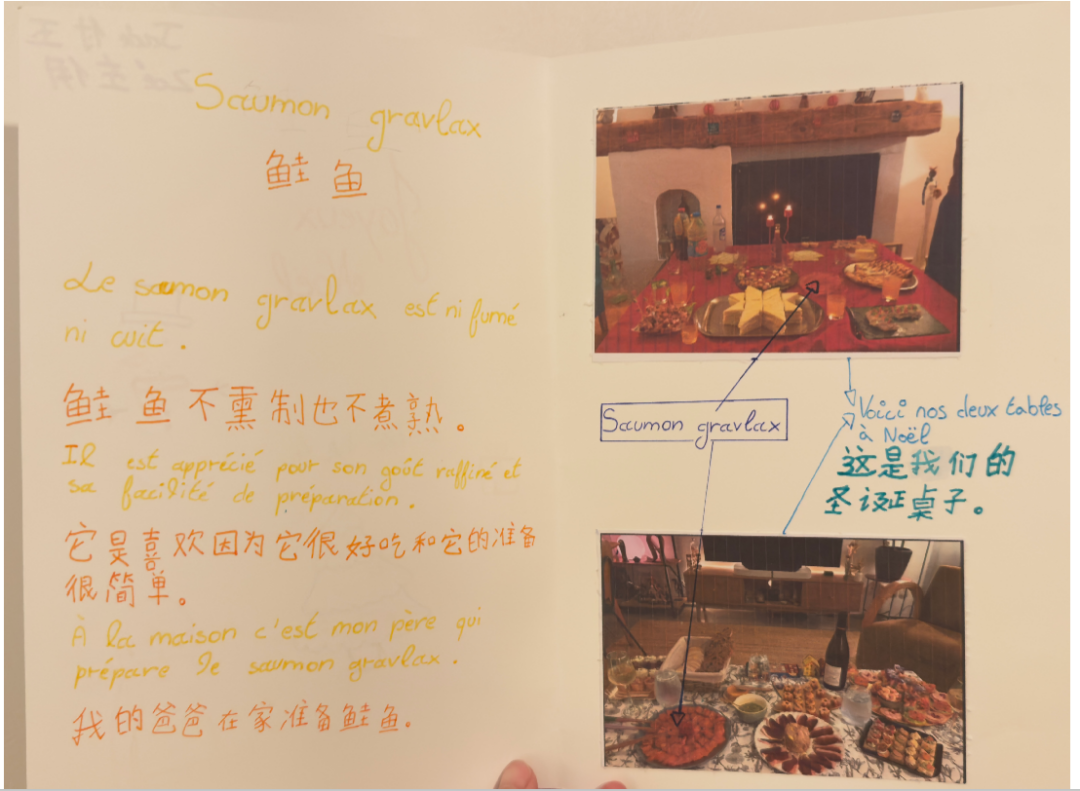 Saumon gravlax
鲑鱼
Le saumon gravlax est ni fumé
ni cuit.
鲑鱼不熏制也不煮熟。
Il est apprécié pour son goût raffiné et
sa facilité de préparation.
它是喜欢因为它很好吃和它的准备
很简单。
À la maison c'est mon père qui
prépare le saumon gravlax.
我的爸爸在家准备鲑鱼。
Saumon gravlax
Voici nos deux tables
à Noël
这是我们的
圣诞桌子。